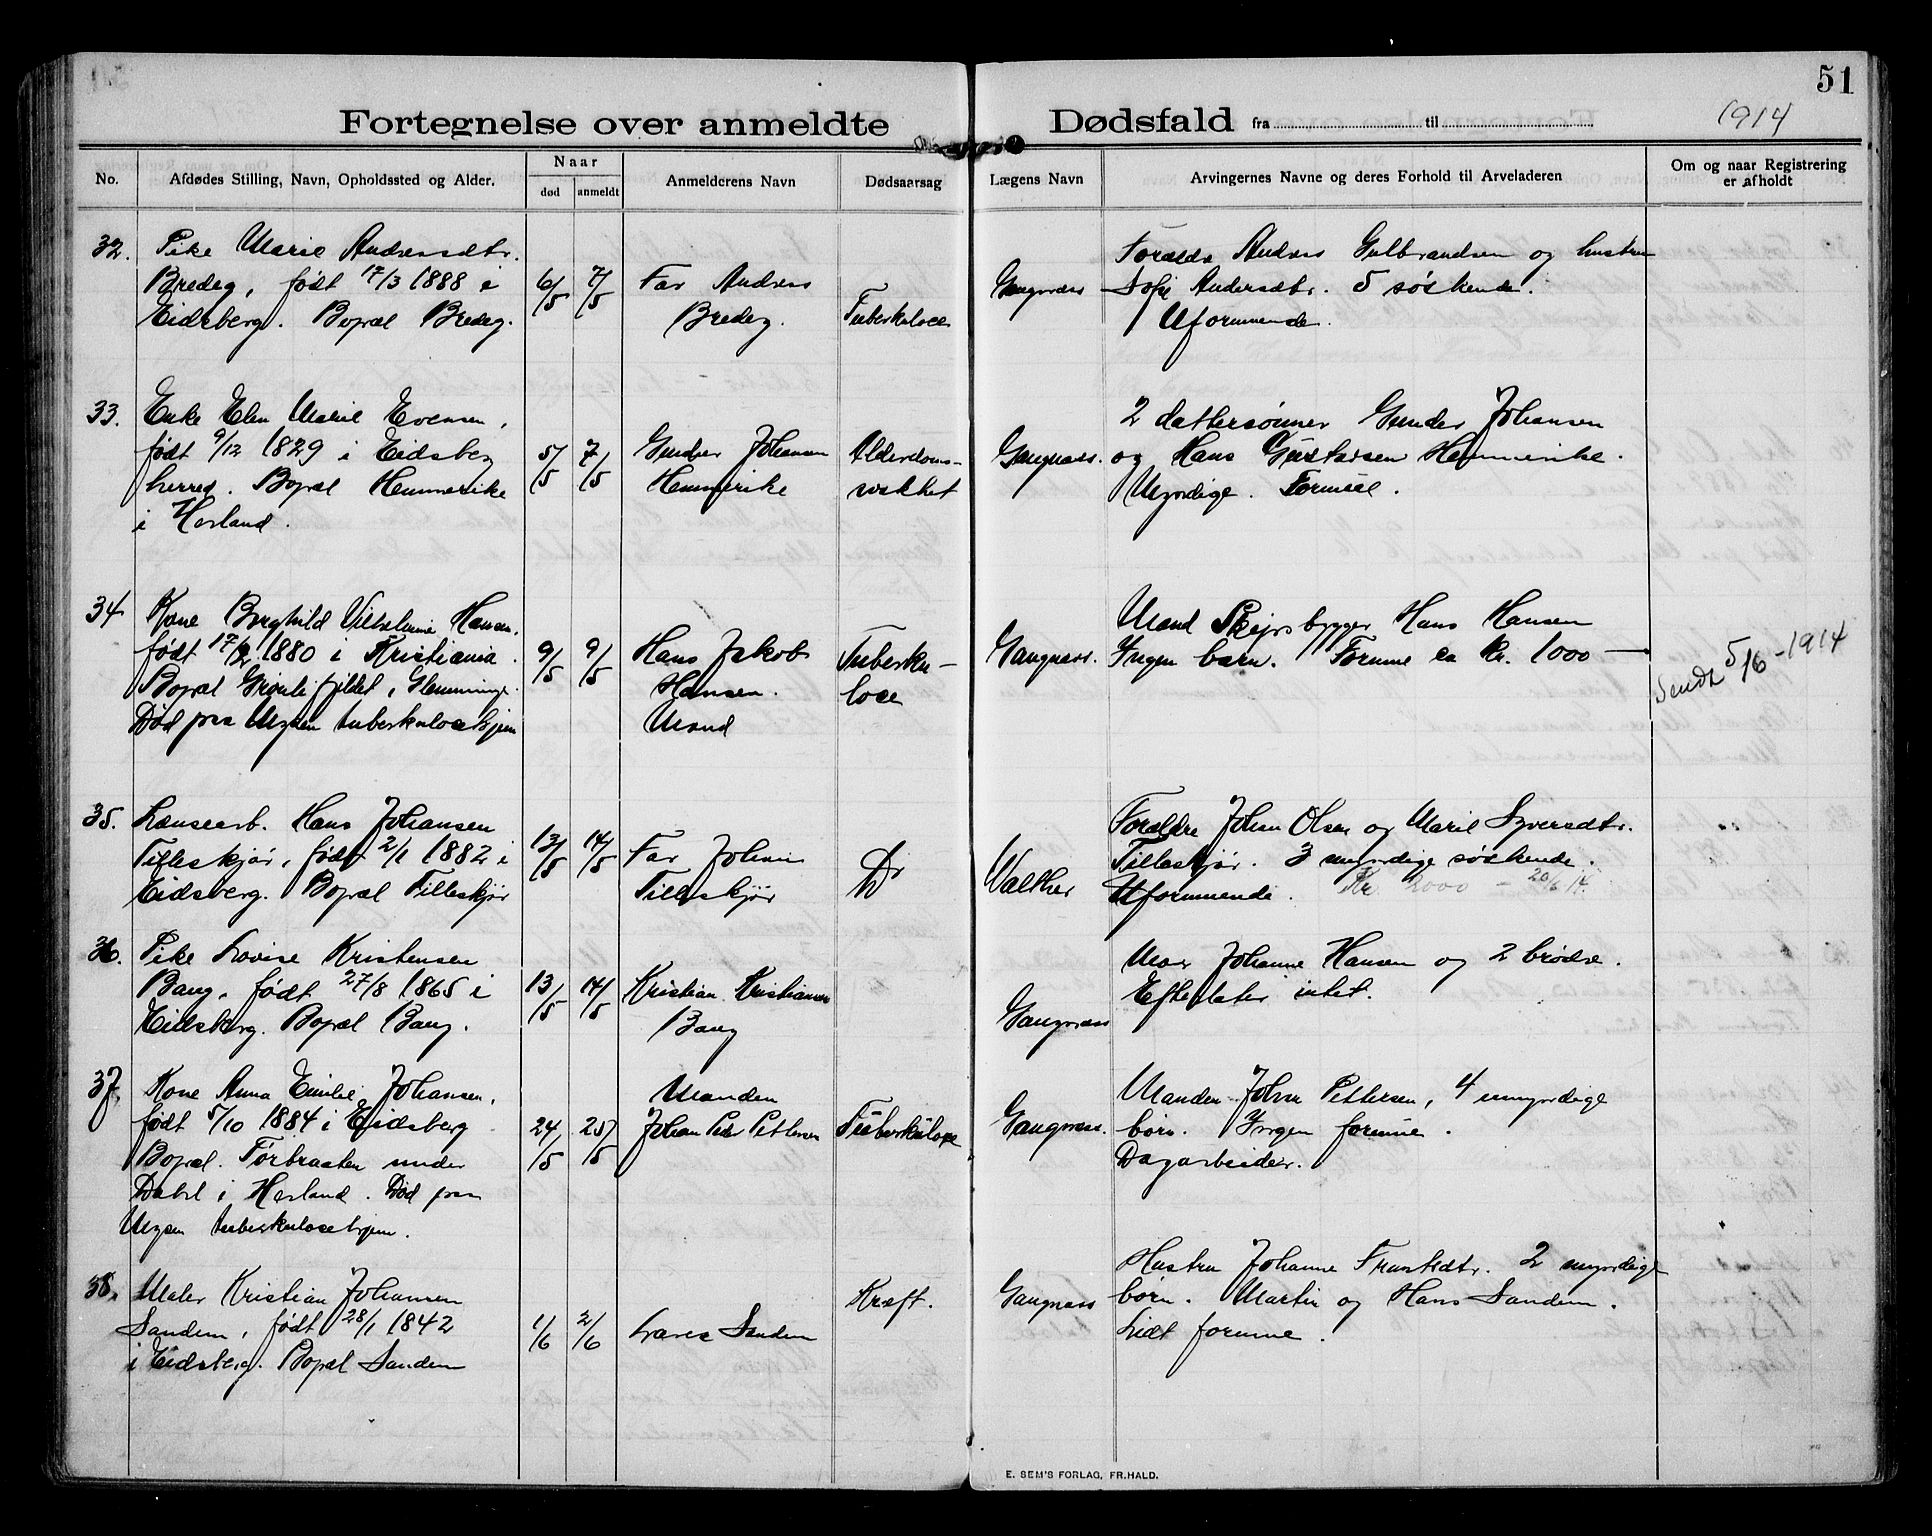 51
Fortegnelse over anmeldte Dødsfald fra til 1914
No.
Afdødes Stilling, Navn, Opholdssted og Alder.
Naar
død
anmeldt
Anmelderens Navn
Dødsaarsag
Lægens Navn
Arvingernes Navne og deres Forhold til Arveladeren
Om og naar Registrering
er afholdt
32.
Pike Marie Andersdtr.
Bredeg, født 17/3 1888 i
Eidsberg. Bopæl Bredeg.
6/5
7/5
Far Anders
Bredeg.
Tuberkulose
Gangnæss
Forældre Anders Gulbrandsen og hustru
Sofie Andersdtr. 5 søskende.
Uformuende.
33.
Enke Elen Marie Evensen,
født 9/12 1829 i Eidsberg
herred. Bopæl Hemmerike
i Herland.
5/5
7/5
Gunder Johansen
Hemmerike
Alderdoms-
svakhet
Gangnæss.
2 dattersønner Gunder Johansen
og Hans Gustavsen Hemmerike.
Myndige. Formue.
34
Kone Borghild Vilhelmine Hansen.
født 17/2 1880 i Kristiania.
Bopæl Grønlifjeldet, Glemminge.
Død paa Mysen tuberkulosehjem
9/5
9/5
Hans Jakob
Hansen.
Mand
Tuberku-
lose
Gangnæss.
Mand Skipsbygger Hans Hansen
Yngen barn. Formue ca Kr. 1000 —
Sendt 5/6 - 1914
35.
Lænsearb. Hans Johansen
Tilleskjør, født 2/1 1882 i
Eidsberg. Bopæl Tilleskjør
13/5
14/5
Far Johan
Tilleskjør
Do
Walther
Forældre Johan Olsen og Marie Syversdtr.
Tilleskjør. 3 myndige søskende.
Uformuende. Kr 2000 - 20/6 14.
36.
Pike Lovise Kristensen
Bang, født 27/8 1865 i
Eidsberg. Bopæl Bang.
13/5
14/5
Kristian Kristiansen
Bang
Gangnæss
Mor Johanne Hansen og 2 brødre.
Efterlater intet.
37.
Kone Anna Emilie Johansen,
født 5/10 1884 i Eidsberg
Bopæl. Tørbraaten under
Dabel i Herland. Død paa
Mysen tuberkulosehjem.
24/5
25/5
Manden
Johan Peder Pettersen
Tuberkulose
Gangnæss.
Manden Johan Pettersen, 4 umyndige
børn. Yngen formue.
Dagarbeider.
38.
Maler Kristian Johansen
Sandem, født 28/1 1842
i Eidsberg. Bopæl Sandem
1/6
2/6
Sandem
Kræft.
Gangnæss
Hustru Johanne 2 myndige
børn. Martin og Hans Sandem.
Lidt formue.
E. SEM'S FORLAG, FR.HALD.